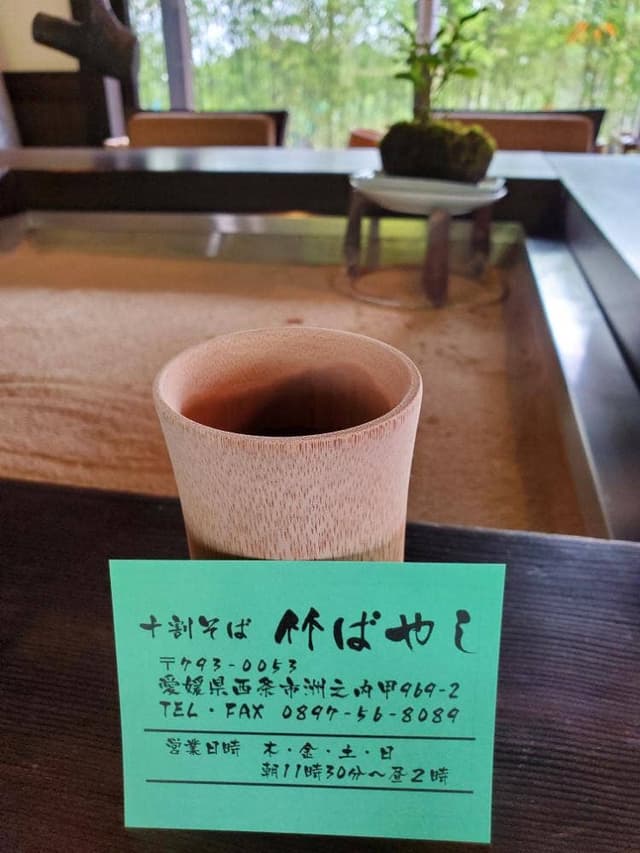 十割そば 竹ばやし
〒793-0053
愛媛県西条市洲之内甲969-2
TEL・FAX 0897-56-8089
営業日時 木・金・土・日
朝11時30分～昼2時